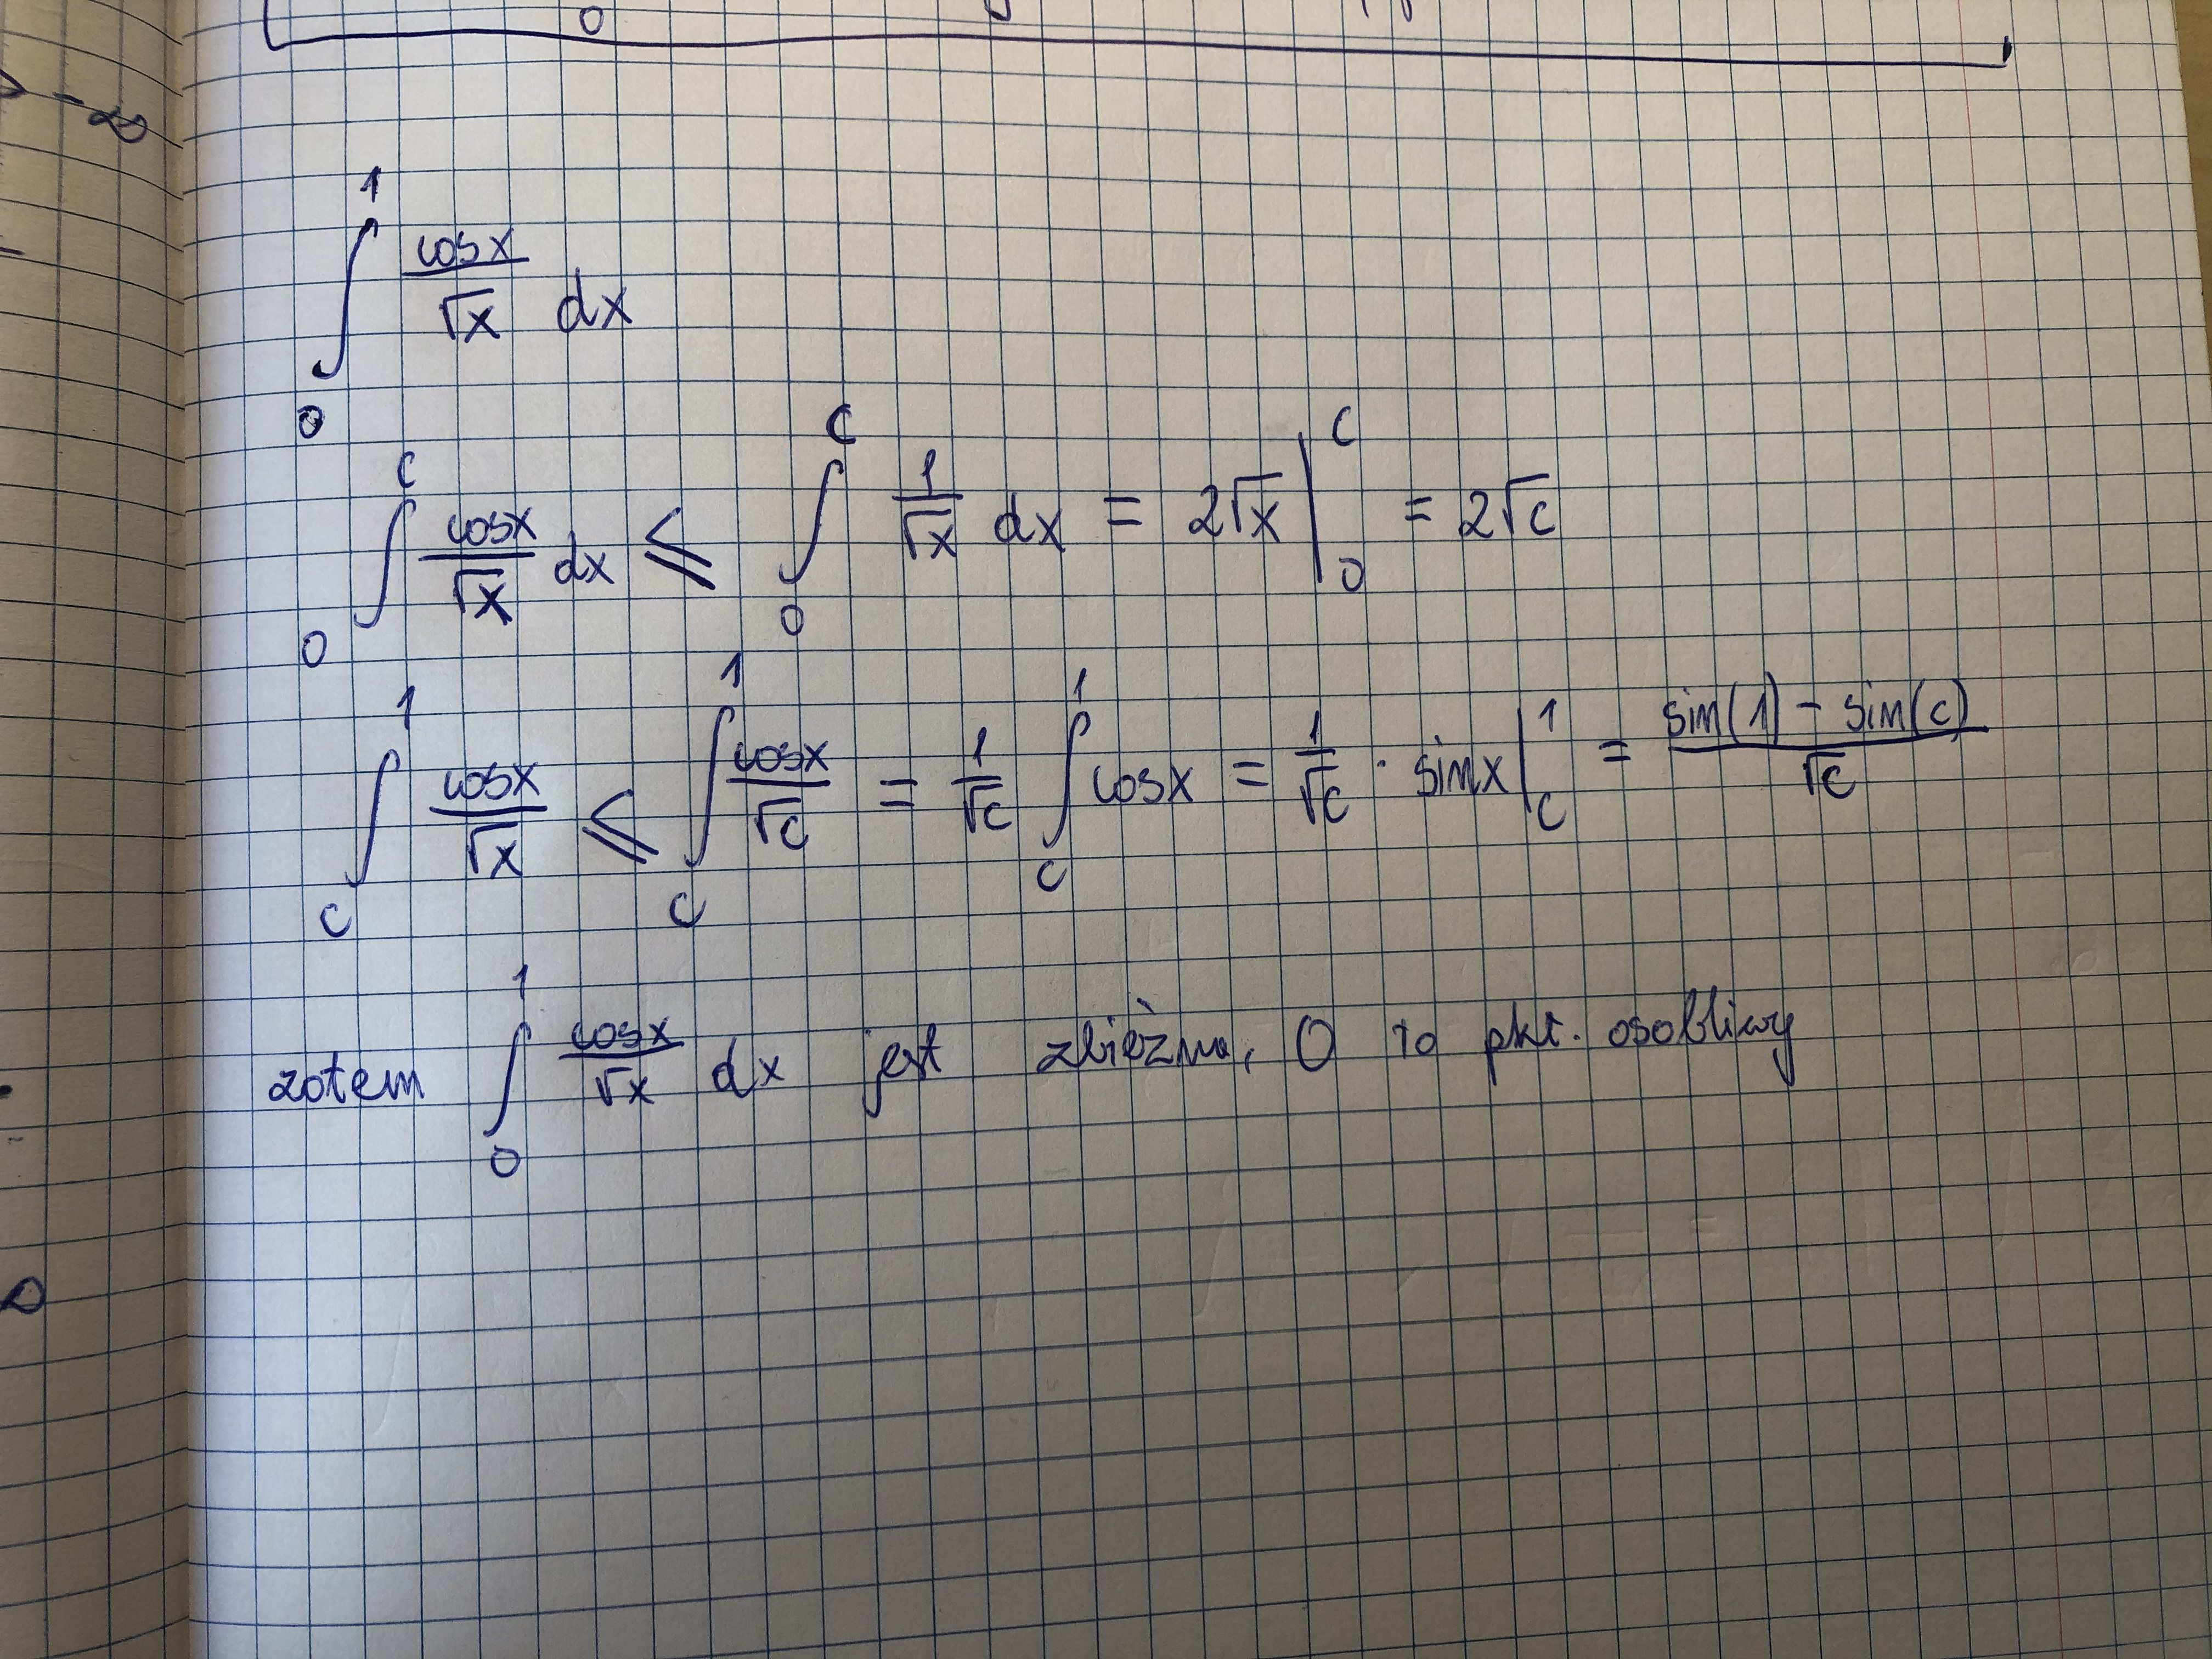 0
-∞
∫₀¹ cosx/√x dx
∫₀ᶜ cosx/√x dx ≤ ∫₀ᶜ 1/√x dx = 2√x |₀ᶜ = 2√c
∫_c¹ cosx/√x ≤ ∫_c¹ cosx/√c = 1/√c ∫_c¹ cosx = 1/√c · sinx |_c¹ = (sin(1) - sin(c))/√c
zatem ∫₀¹ cosx/√x dx jest zbieżna, 0 to pkt. osobliwy